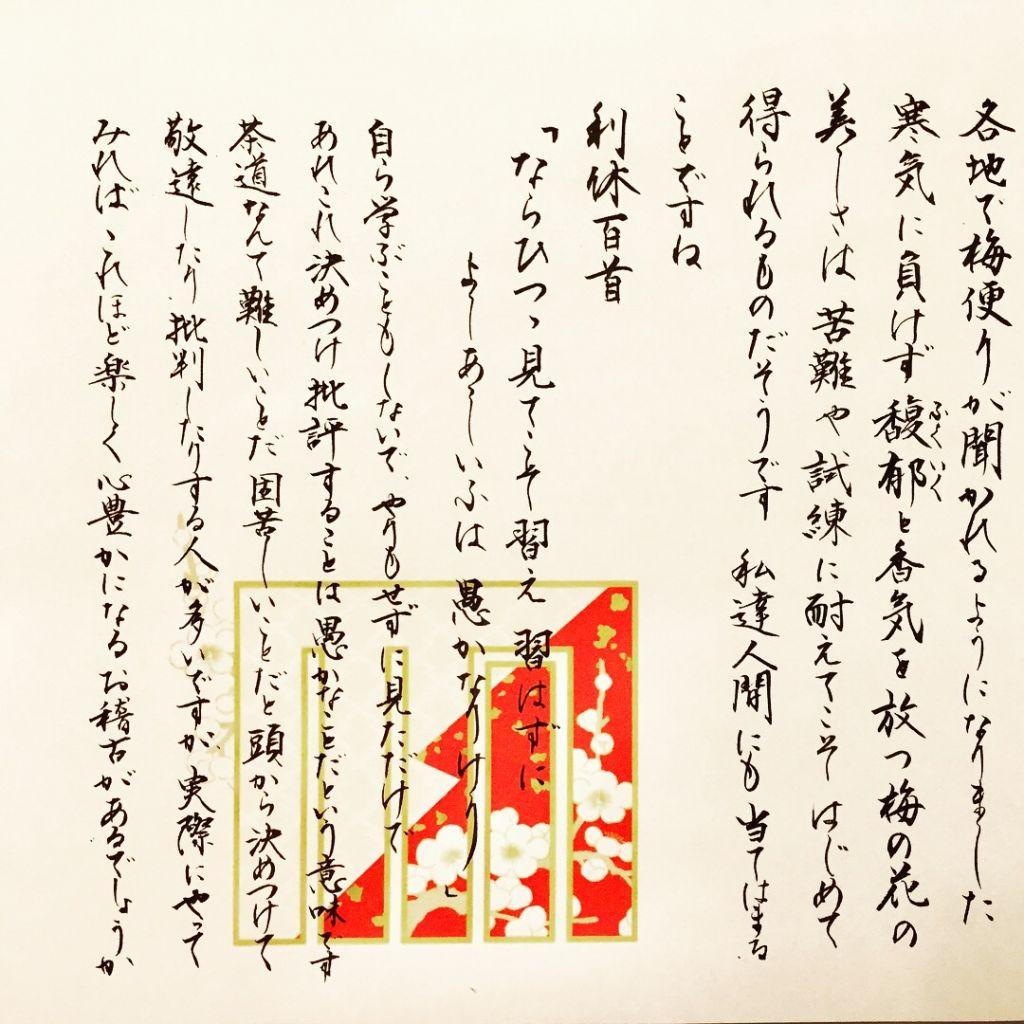 各地で梅便りが聞かれるようになりました
寒気に負けず馥郁と香気を放つ梅の花の
ふくいく
美しさは苦難や試練に耐えてこそはじめて
得られるものだそうです 私達人間にも当てはまる
ことですね
利休百首
「ならひつゝ見てこそ習え習はずに
よしあしいふは愚かなりけり」
自ら学ぶこともしないで、やりもせずに見ただけで
あれこれ決めつけ批評することは愚かなことだという意味です
茶道なんて難しいことだ固苦しいことだと頭から決めつけて
敬遠したり批判したりする人が多いですが、実際にやって
みれば、これほど楽しく心豊かになるお稽古があるでしょうか